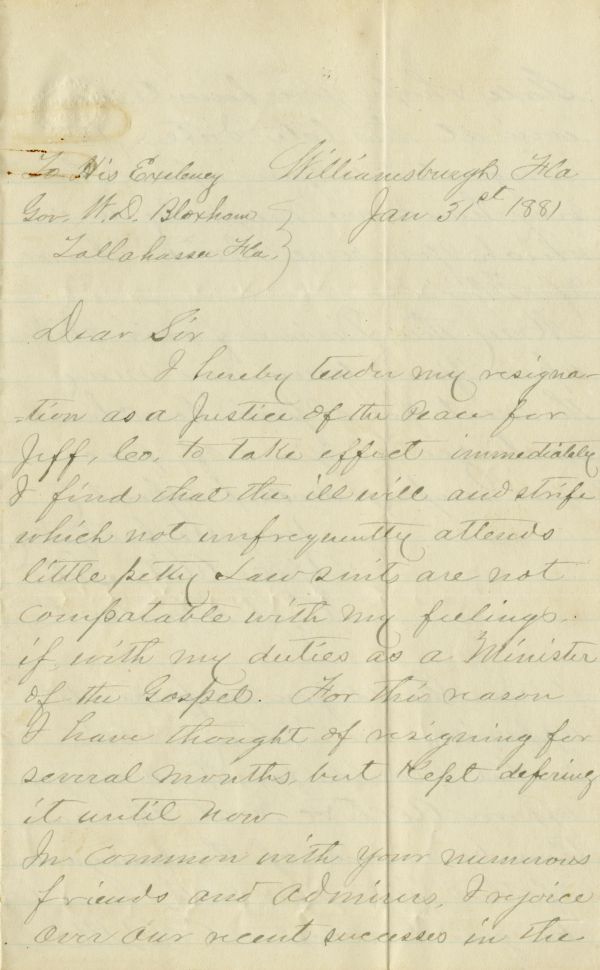 To His Exelency Williamsburgh Fla
Gov. W. D. Bloxham Jan 31st 1881
Tallahassee Fla.
Dear Sir
I hereby tender my resigna-
-tion as a Justice of the Peace for
Jeff, Co. to take effect immediately
I find that the ill will and strife
which not unfrequently attends
little petty Law suits are not
compatable with my feelings,
if, with my duties as a Minister
of the Gospel. For this reason
I have thought of resigning for
several months, but kept defering
it until now
In common with your numerous
friends and admirers, I rejoice
over our recent successes in the